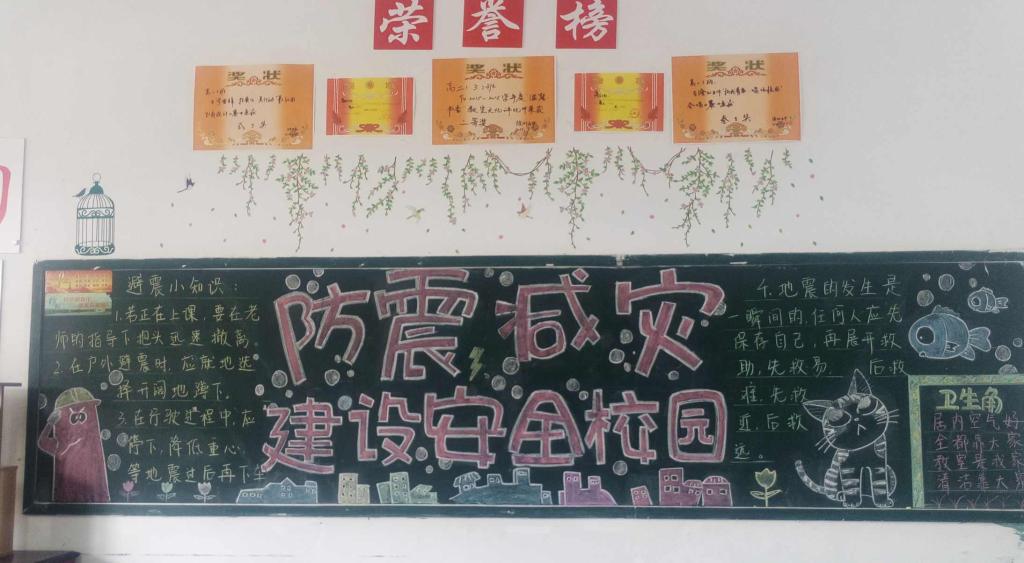 荣誉榜
奖状
奖状
奖状
高二1.3班
二等奖
防震减灾
建设安全校园
避震小知识:
1.若正在上课,要在老
师的指导下抱头迅速撤离。
2.在户外避震时,应就地选
择开阔地蹲下。
3.在行驶过程中,应
停下,降低重心,
等地震过后再下车
地震的发生是
一瞬间的,任何人应先
保存自己,再展开救
助,先救易,后救
难,先救
近,后救
远。
卫生角
居内空气好
全都靠大家
教室是我家
清洁靠大家